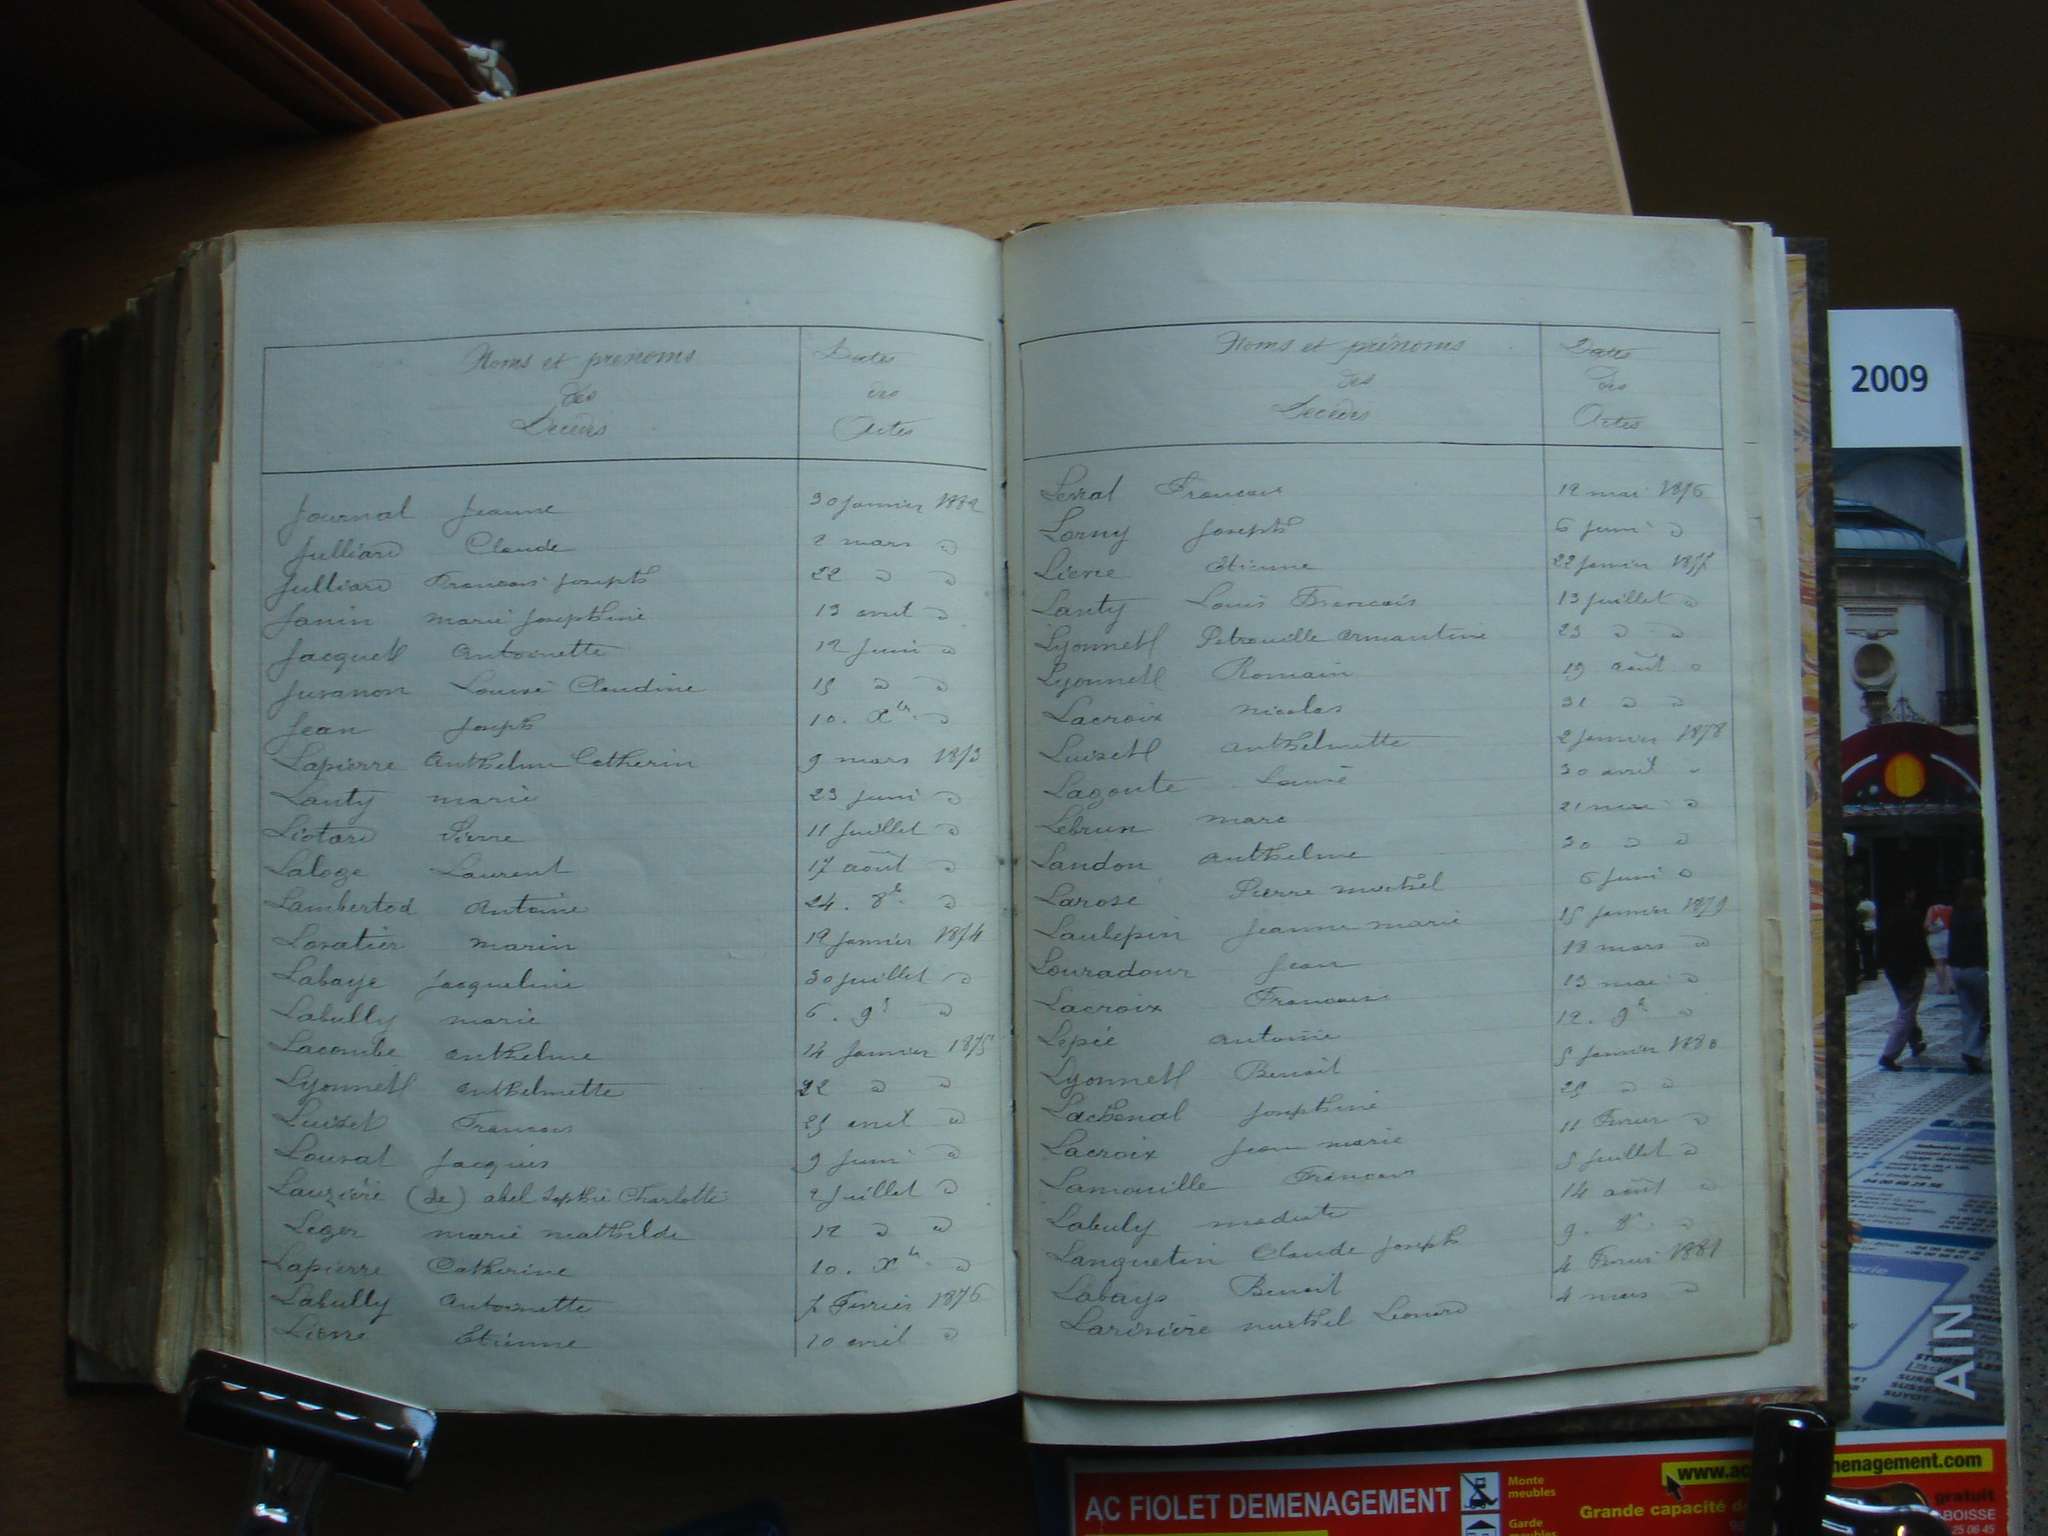 Noms et prénoms
des
Décédés
Dates
des
Actes
Journal Jeanne 30 Janvier 1882
Julliard Claude 2 mars "
Julliard Francois Joseph 22 " "
Janin marie Josephine 13 avril "
Jacquet Antoinette 12 Juin "
Juvanon Louise Claudine 15 " "
Jean Joseph 10. Xbre "
Lapierre Anthelme Catherin 9 mars 1873
Lanty marie 23 Juin "
Liotard Pierre 11 Juillet "
Laloge Laurent 17 août "
Lambertod Antoine 24. 8bre "
Lovatier marin 19 Janvier 1874
Labaye Jacqueline 30 Juillet "
Labully marie 6. 9bre "
Lacombe anthelme 14 Janvier 1875
Lyonnet anthelmette 22 " "
Luizet Francois 25 avril "
Louvat Jacques 9 Juin "
Lauzière (de) abel Sophie Charlotte 2 Juillet "
Leger marie mathilde 12 " "
Lapierre Catherine 10. Xbre "
Labully Antoinette Fevrier 1876
Lievre Etienne 10 avril "
Noms et prénoms
des
Décédés
Dates
des
Actes
Levrat Francois 12 mai 1876
Lorny Joseph 6 Juin "
Lievre Etienne 22 Janvier 1877
Lanty Louis Francois 13 Juillet "
Lyonnet Petronille Armantine 23 " "
Lyonnet Romain 19 août "
Lacroix nicolas 31 " "
Luizet anthelmette 2 Janvier 1878
Lagoute Louise 30 avril "
Lebrun marc 21 mai "
Landon anthelme 30 " "
Larose Pierre michel 6 Juin "
Laulepin Jeanne marie 15 Janvier 1879
Louradour Jean 18 mars "
Lacroix Francois 13 mai "
Lépié antoine 12. 9bre "
Lyonnet Benoit 5 Janvier 1880
Lachenal Josephine 29 " "
Lacroix Jean marie 11 Fevrier "
Lamouille Francois 5 Juillet "
Labuly modeste 14 août "
Languetin Claude Joseph 9. 8bre "
Labaye Benoit 4 Fevrier 1881
Larivière michel Leonard 4 mars "
2009
AIN
AC FIOLET DEMENAGEMENT
Monte
meubles
Garde
meubles
Grande capacité
gratuit
25 06 45